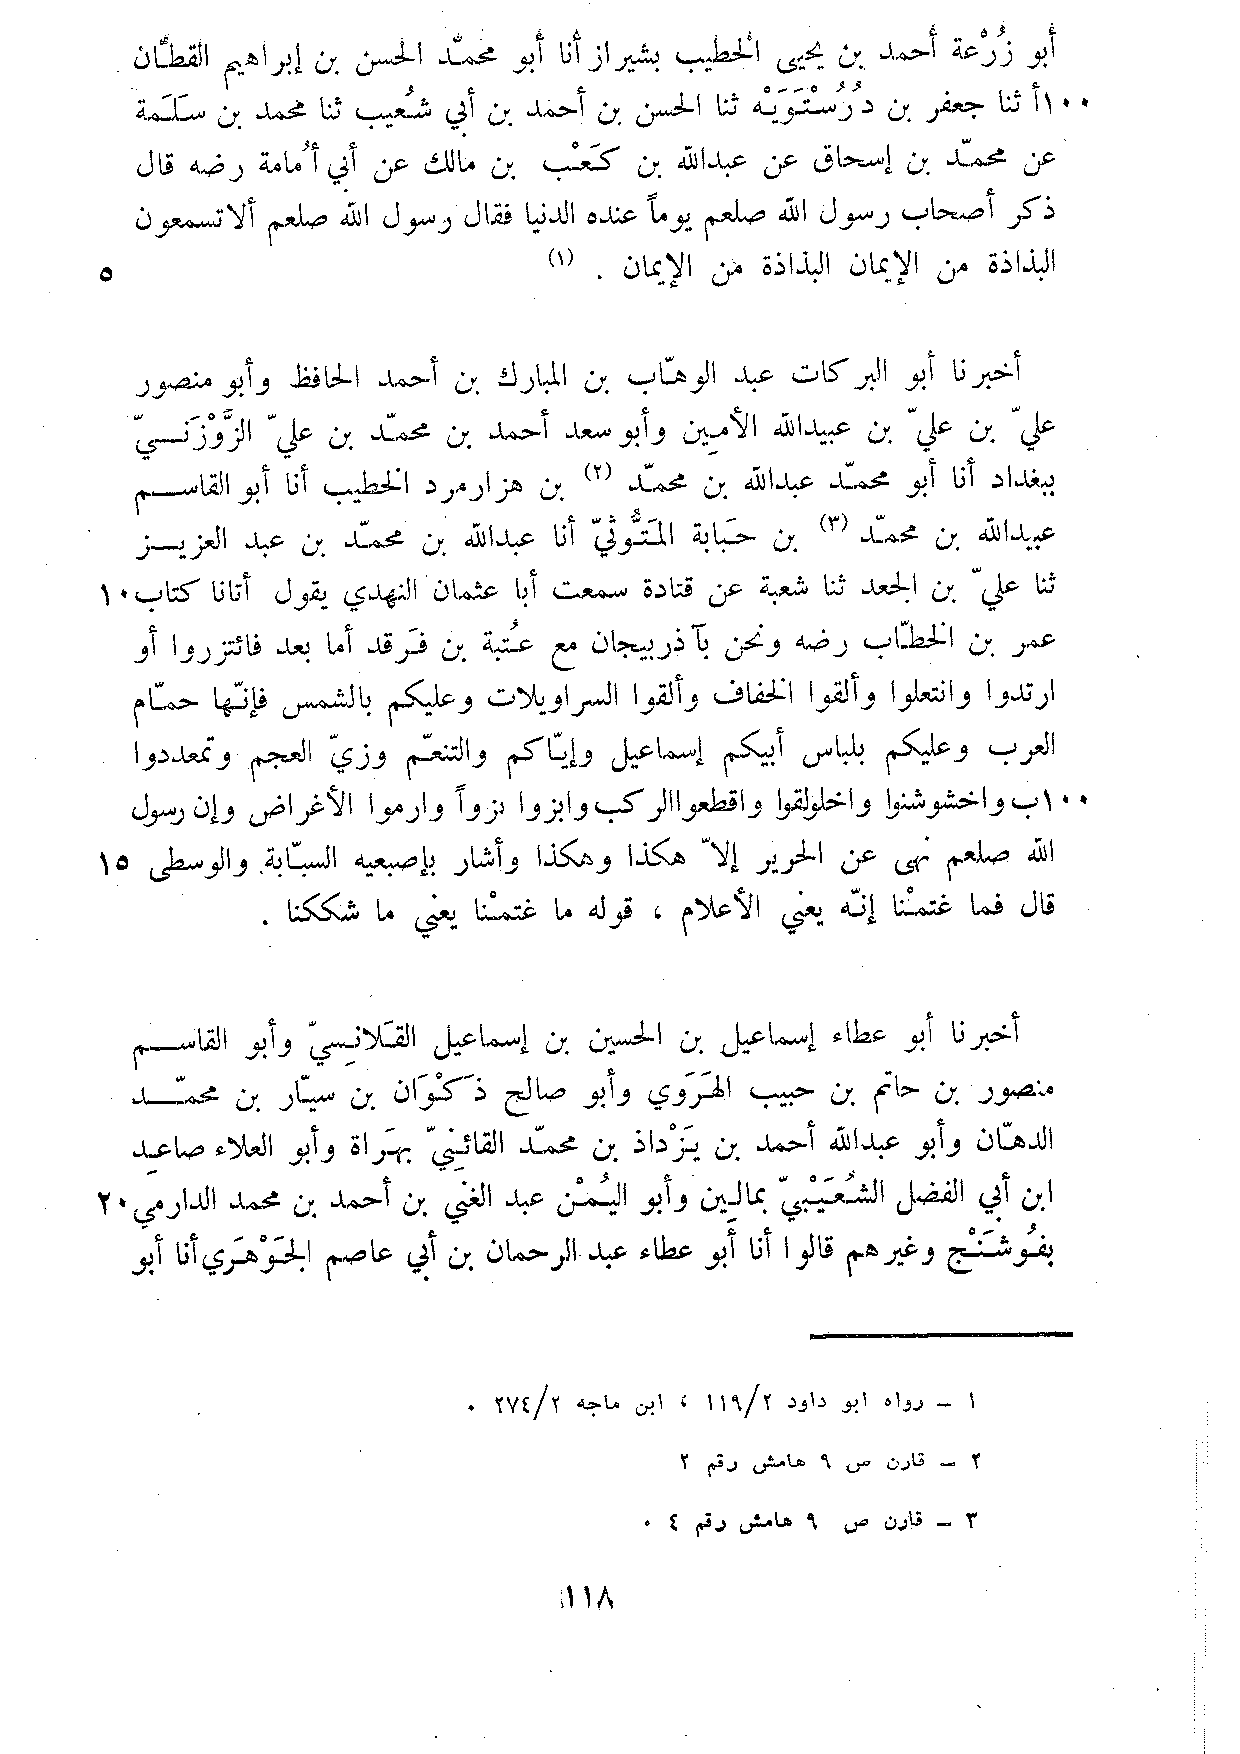 أبو زُرْعة أحمد بن يحيى الخطيب بشيراز أنا أبو محمّد الحسن بن إبراهيم القطّان
١٠٠أ ثنا جعفر بن دُرُسْتَوَيْه ثنا الحسن بن أحمد بن أبي شُعيب ثنا محمد بن سَلَمة
عن محمّد بن إسحاق عن عبدالله بن كَعْب بن مالك عن أبي أُمامة رضه قال
ذكر أصحاب رسول الله صلعم يوماً عنده الدنيا فقال رسول الله صلعم ألاتسمعون
البذاذة من الإيمان البذاذة من الإيمان . (١) ٥
أخبرنا أبو البركات عبد الوهّاب بن المبارك بن أحمد الحافظ وأبو منصور
عليّ بن عليّ بن عبيدالله الأمين وأبو سعد أحمد بن محمّد بن عليّ الزَّوْزَنيّ
ببغداد أنا أبو محمّد عبدالله بن محمّد (٢) بن هزارمرد الخطيب أنا أبو القاسم
عبيدالله بن محمّد (٣) بن حَبابة المَتُّوثيّ أنا عبدالله بن محمّد بن عبد العزيز
ثنا عليّ بن الجعد ثنا شعبة عن قتادة سمعت أبا عثمان النهدي يقول أتانا كتاب ١٠
عمر بن الخطّاب رضه ونحن بآذربيجان مع عُتبة بن فَرقد أما بعد فائتزروا أو
ارتدوا وانتعلوا وألقوا الخفاف وألقوا السراويلات وعليكم بالشمس فإنّها حمّام
العرب وعليكم بلباس أبيكم إسماعيل وإيّاكم والتنعّم وزيّ العجم وتمعددوا
١٠٠ب واخشوشنوا واخلولقوا واقطعوا الركب وابزوا بزواً وارموا الأغراض وإن رسول
الله صلعم نهى عن الحرير إلاّ هكذا وهكذا وأشار بإصبعيه السبّابة والوسطى ١٥
قال فما غتمْنا إنّه يعني الأعلام ، قوله ما غتمْنا يعني ما شككنا .
أخبرنا أبو عطاء إسماعيل بن الحسين بن إسماعيل القَلانِسيّ وأبو القاسم
منصور بن حاتم بن حبيب الهَرَوي وأبو صالح ذَكْوَان بن سيّار بن محمّد
الدهّان وأبو عبدالله أحمد بن يَزْداذ بن محمّد القائنيّ بهَراة وأبو العلاء صاعِد
ابن أبي الفضل الشُعَيْبيّ بمالِين وأبو اليُمْن عبد الغني بن أحمد بن محمد الدارمي ٢٠
بفُوشَنْج وغيرهم قالوا أنا أبو عطاء عبد الرحمان بن أبي عاصم الجَوْهَري أنا أبو
١ – رواه ابو داود ٢/١١٩ ؛ ابن ماجه ٢/٢٧٤ .
٢ – قارن ص ٩ هامش رقم ٢
٣ – قارن ص ٩ هامش رقم ٤ .
١١٨